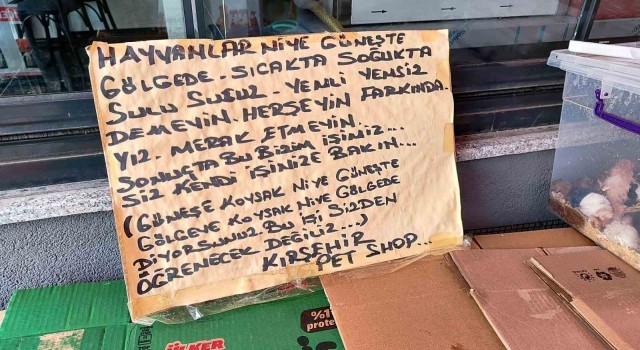 HAYVANLAR NİYE GÜNEŞTE
GÖLGEDE - SICAKTA SOĞUKTA
SULU SUSUZ - YEMLİ YEMSİZ
DEMEYİN. HERŞEYİN FARKINDA.
YIZ. MERAK ETMEYİN.
SONUÇTA BU BİZİM İŞİNİZ...
SİZ KENDİ İŞİNİZE BAKIN...
(GÜNEŞE KOYSAK NİYE GÜNEŞTE
GÖLGEYE KOYSAK NİYE GÖLGEDE
DİYORSUNUZ BU İŞİ SİZDEN
ÖĞRENECEK DEĞİLİZ...)
KIRŞEHİR
PET SHOP...
ÜLKER